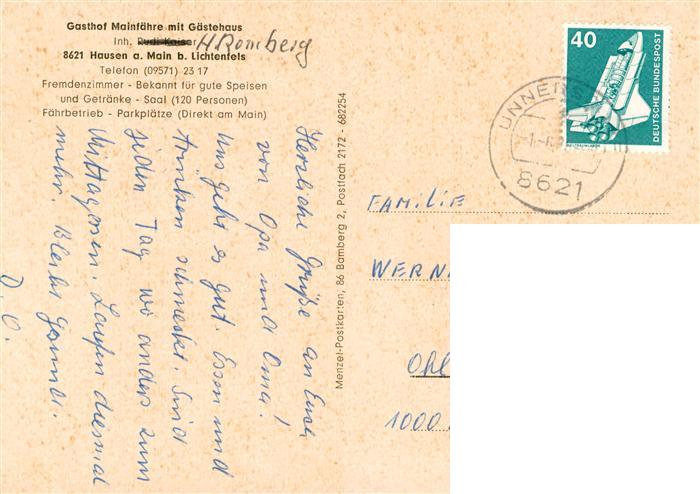 Gasthof Mainfähre mit Gästehaus
Inh. Rudi Kaiser H Romberg
8621 Hausen a. Main b. Lichtenfels
Telefon (09571) 23 17
Fremdenzimmer - Bekannt für gute Speisen
und Getränke - Saal (120 Personen)
Fährbetrieb - Parkplätze (Direkt am Main)
Herzliche Grüße an Euch
von Opa und Oma!
Uns geht es gut. Essen und
trinken schmeckt. Sind
jeden Tag wo anders zum
Mittagessen. Laufen diesmal
mehr. Bleibt gesund.
O. O.
Menzel-Postkarten, 86 Bamberg 2, Postfach 2172 - 682254
40
DEUTSCHE BUNDESPOST
UNNERS
8621
FAMILIE
WERN
Ohl
1000